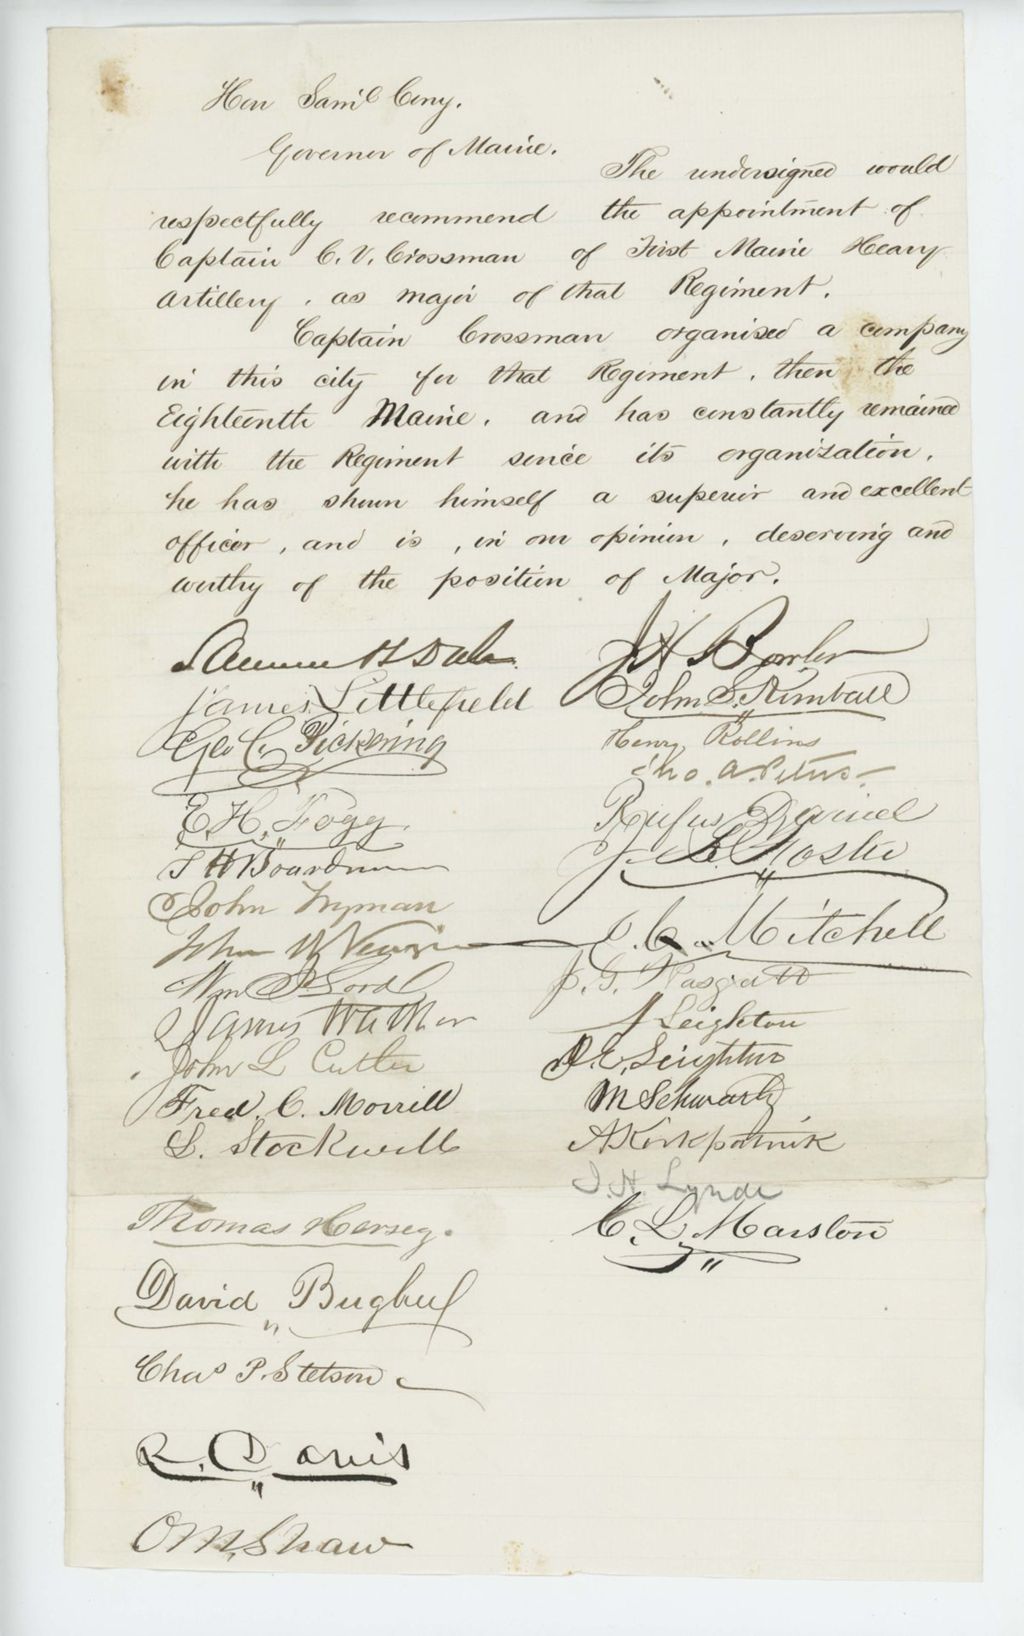 Hon Saml Cony.
Governor of Maine.
The undersigned would
respectfully recommend the appointment of
Captain C. V. Crossman of First Maine Heavy
Artillery, as major of that Regiment.
Captain Crossman organised a company
in this city for that Regiment, then the
Eighteenth Maine, and has constantly remained
with the Regiment since its organization.
he has shown himself a superior and excellent
officer, and is, in our opinion, deserving and
worthy of the position of Major.
Samuel H Dale
James Littlefield
Geo C. Pickering
E. H. Fogg.
T H Boardman
John Wyman
John W Veazie
Wm P Lord
James Walker
John L Cutler
Fred. C. Morrill
L. Stockwell
Thomas Hersey.
David Bugbee
Chas P. Stetson
R. Davis
O M. Shaw
J H Bowler
John S. Kimball
Henry Rollins
Jno. A. Peters
Rufus Daniel
J. C. Mitchell
J. G.
J Leighton
A. E. Leighton
M Schwartz
A Kirkpatrick
J. H. Lynde
C. L. Marston